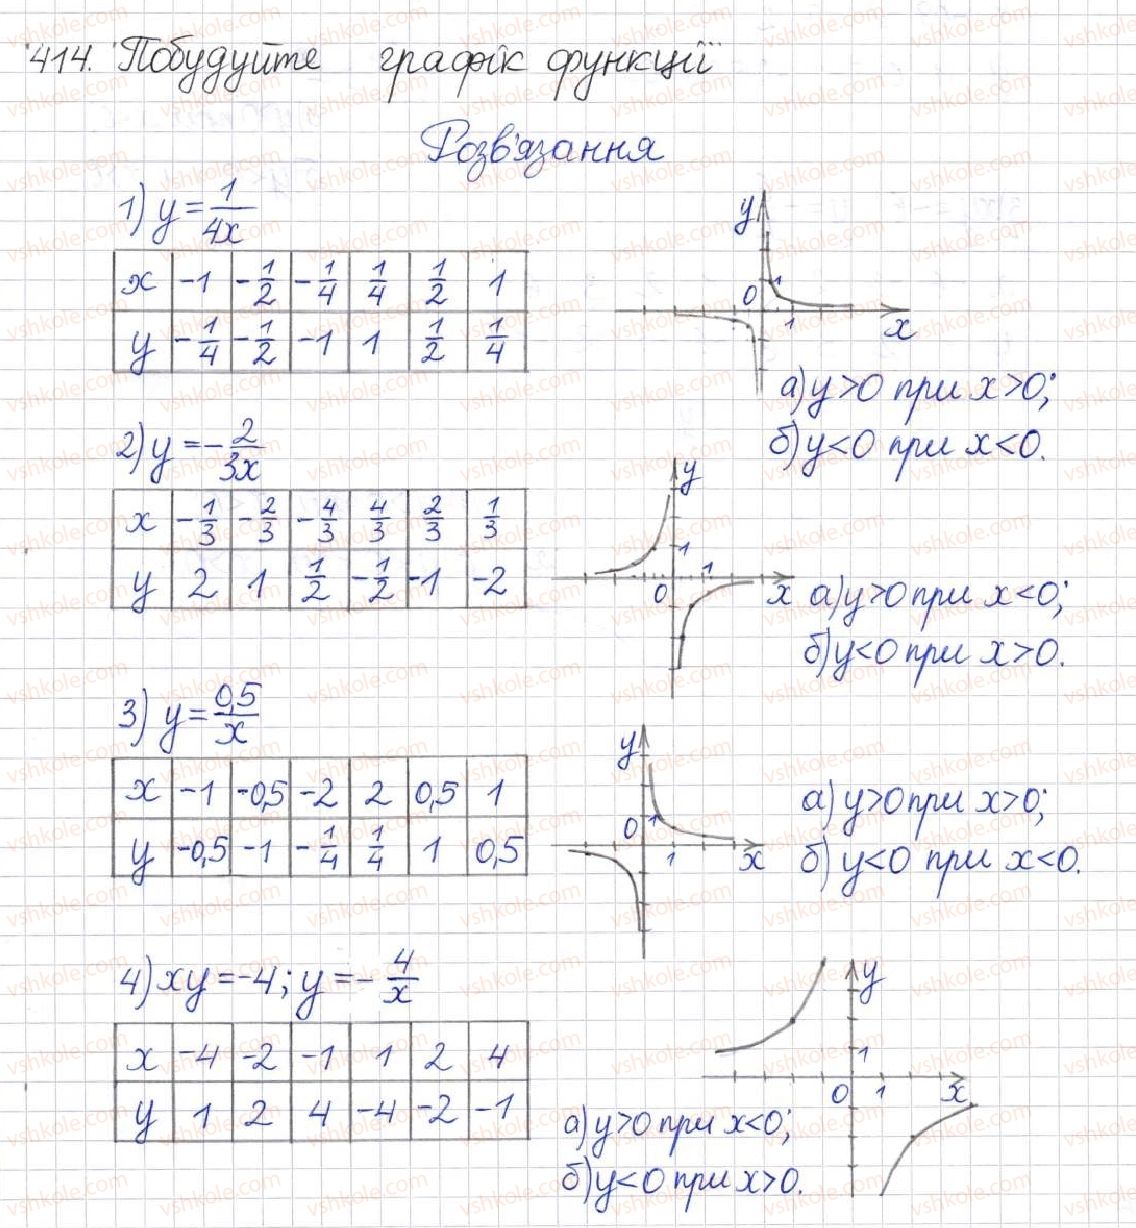 414. Побудуйте графік функції
Розв'язання
1) y = 1/4x
x | -1 | -1/2 | -1/4 | 1/4 | 1/2 | 1
y | -1/4 | -1/2 | -1 | 1 | 1/2 | 1/4
y 0 1 1 x
а) y>0 при x>0;
б) y<0 при x<0.
2) y = -2/3x
x | -1/3 | -2/3 | -4/3 | 4/3 | 2/3 | 1/3
y | 2 | 1 | 1/2 | -1/2 | -1 | -2
y 1 1 0 x
а) y>0 при x<0;
б) y<0 при x>0.
3) y = 0,5/x
x | -1 | -0,5 | -2 | 2 | 0,5 | 1
y | -0,5 | -1 | -1/4 | 1/4 | 1 | 0,5
y 0 1 1 x
а) y>0 при x>0;
б) y<0 при x<0.
4) xy = -4; y = -4/x
x | -4 | -2 | -1 | 1 | 2 | 4
y | 1 | 2 | 4 | -4 | -2 | -1
y 1 0 1 x
а) y>0 при x<0;
б) y<0 при x>0.
vshkole.com